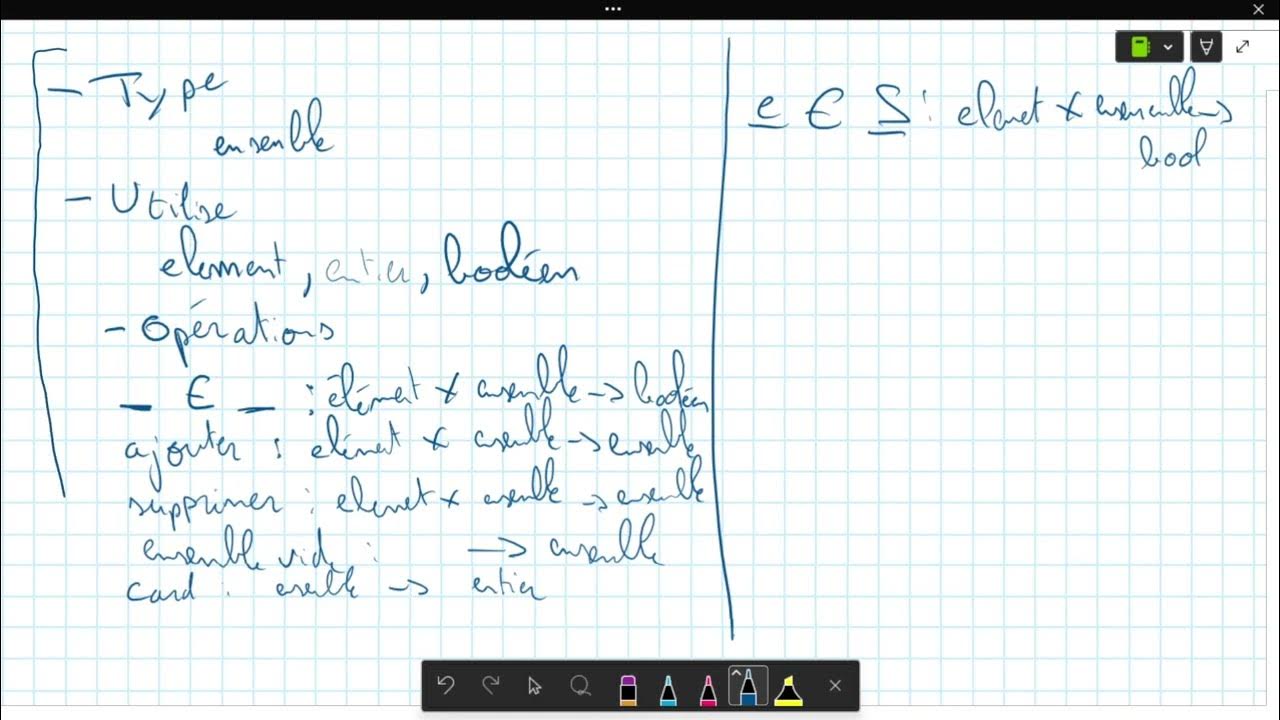 - Type
ensemble
- Utilise
element, entier, booléen
- Opérations
_ ∈ _ : élément × ensemble → booléen
ajouter : elément × ensemble → ensemble
supprimer : element × ensemble → ensemble
ensemble vide : → ensemble
card : ensemble → entier
e ∈ S : element × ensemble →
bool